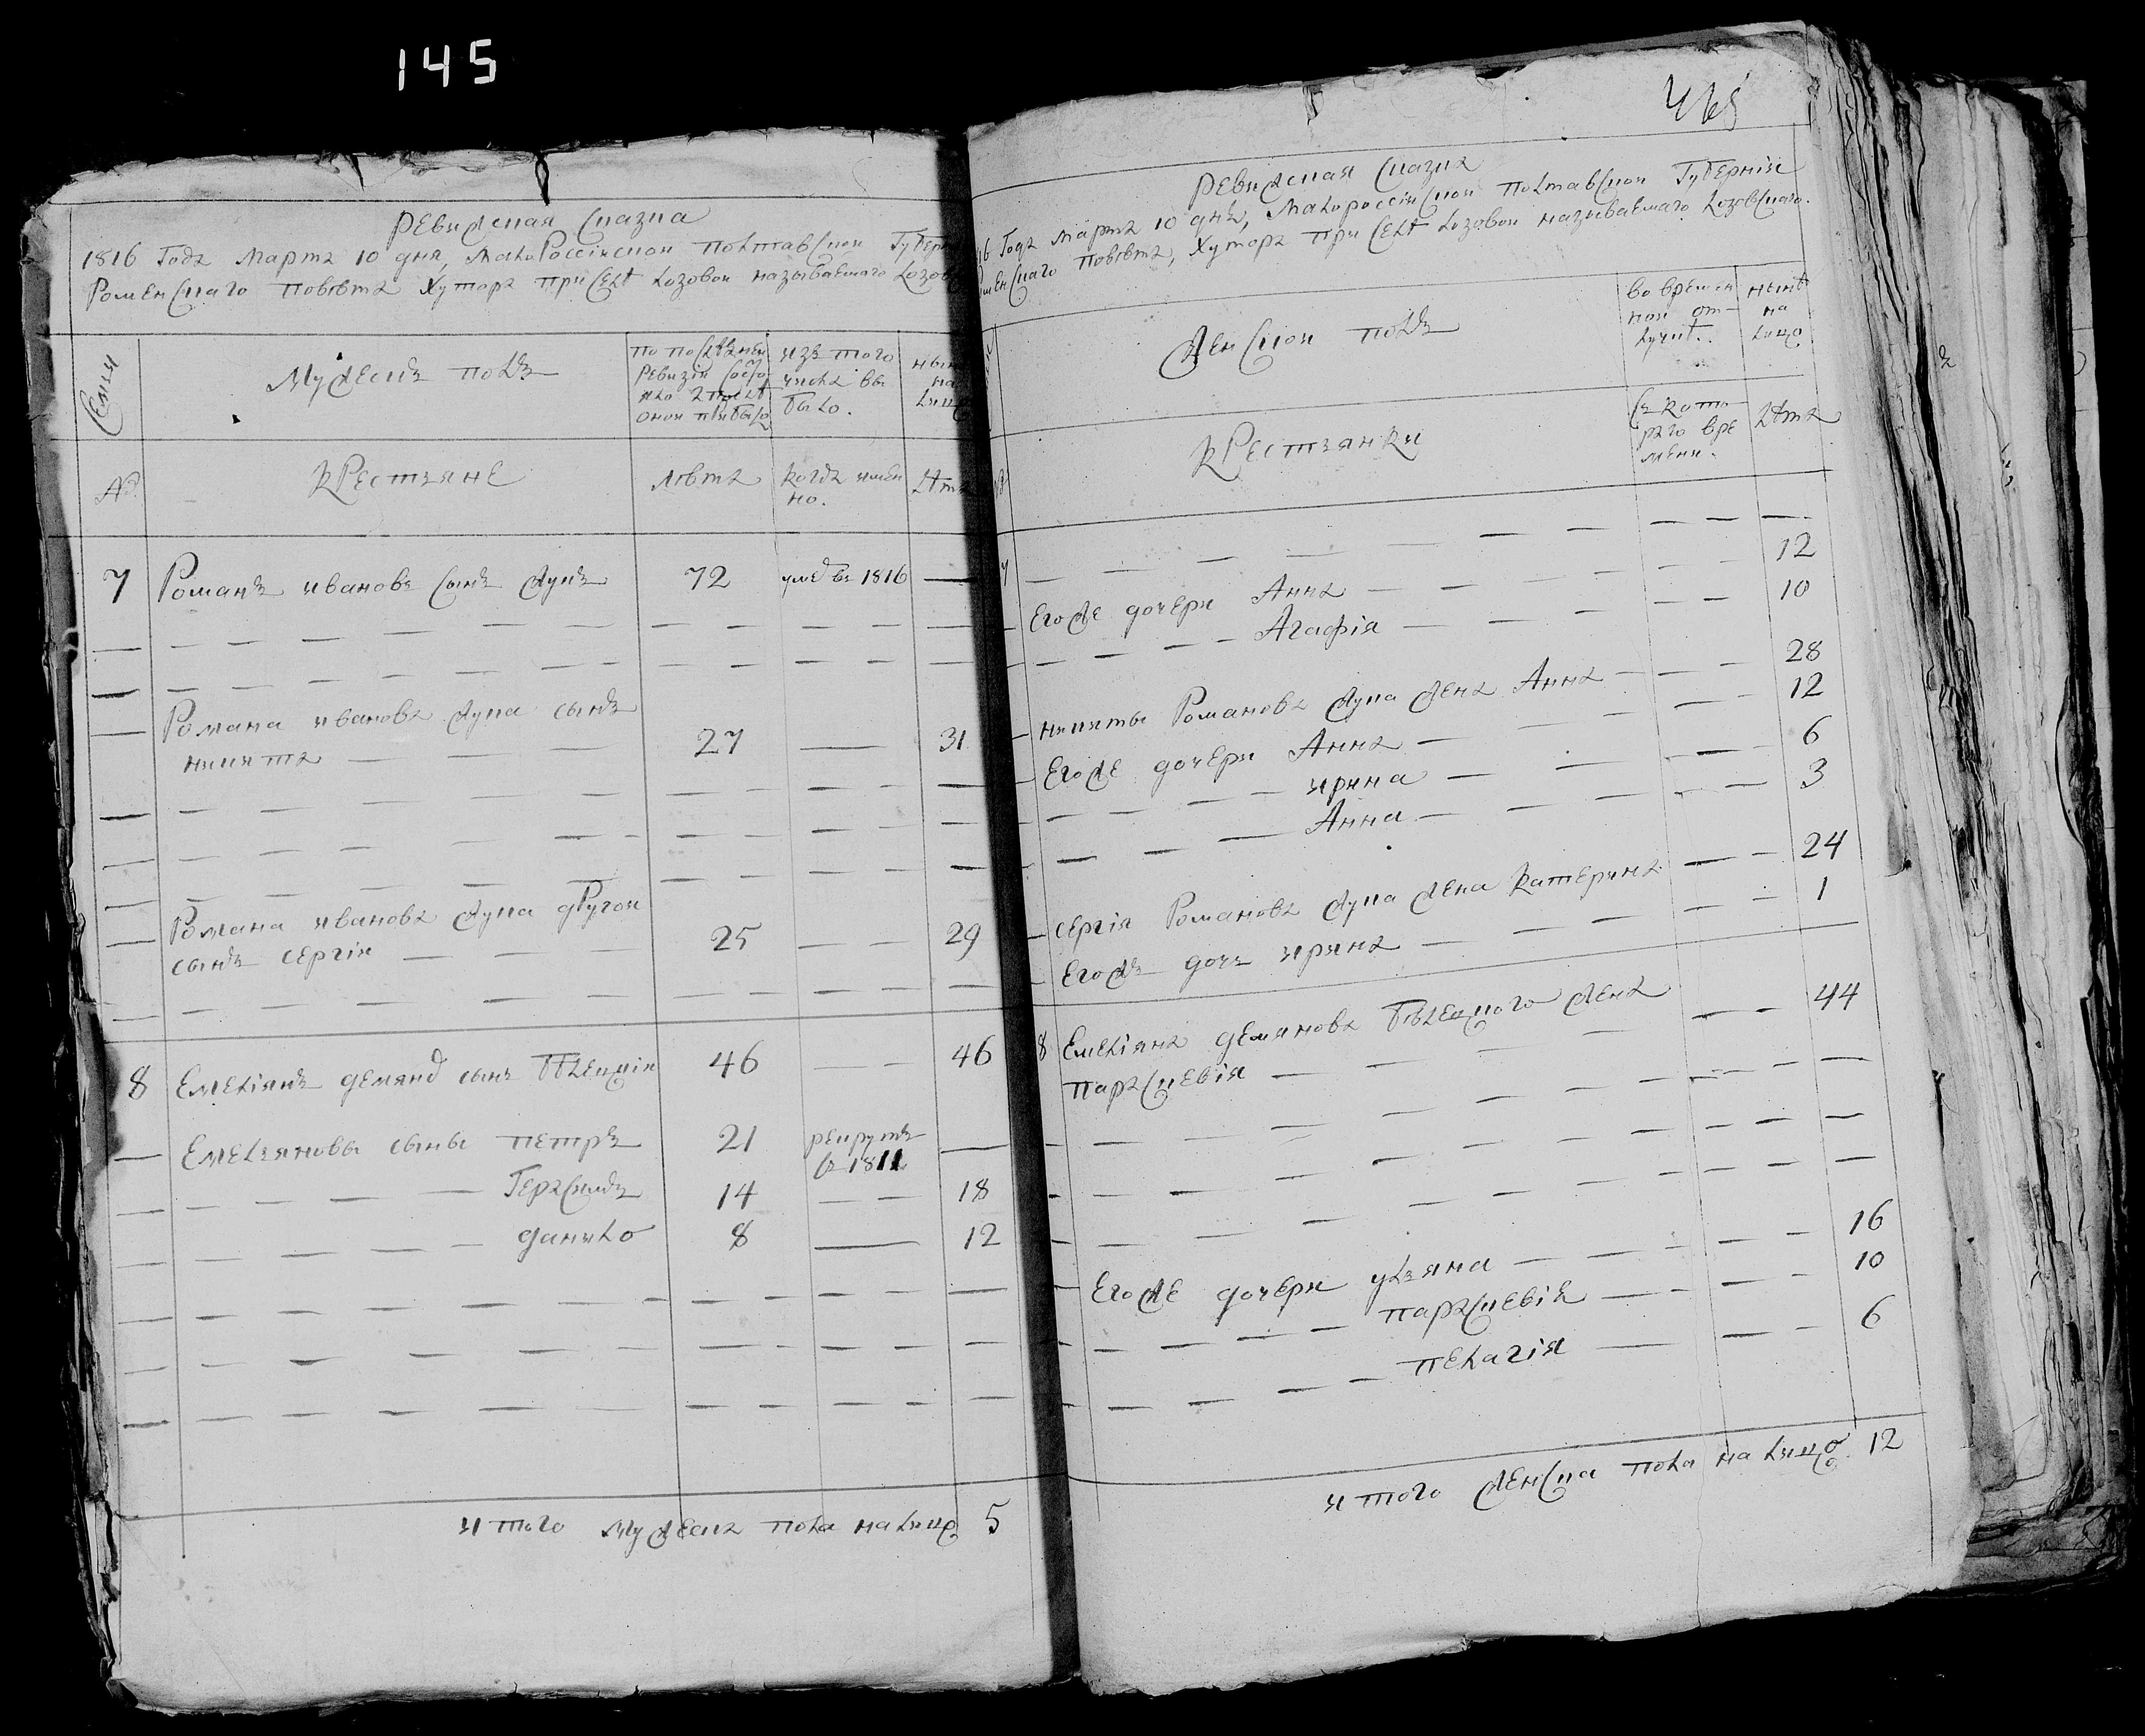 145
Ревижская сказка
1816 года марта 10 дня, малороссійской полтавской Губерн
Роменскаго повѣта хутора при селѣ лозовой называемаго лозов
Семьи
Мужескъ полъ
по последней
Ревизіи состо
яло и после
оной прибыло
изъ того
числа вы
было.
ныне
на
лицо
№
крестьяне
лѣта
когда имен
но.
лѣта
7 Романъ ивановъ сынъ Жукъ 72 умер въ 1816 —
Романа иванова Жука сынъ
никита 27 — 31
Романа иванова Жука другой
сынъ сергій 25 — 29
8 Емеліянъ демянов сынъ 46 — 46
Емельяновы сыны петръ 21 рекрутъ —
въ 1811
Герасимъ 14 — 18
данило 8 — 12
итого мужеска пола налицо 5
465
Ревижская сказка
16 года марта 10 дня, малороссійской полтавской Губерніи
менскаго повѣта, хутора при селѣ лозовой называемаго лозовскаго.
Женской полъ
во времен
ной от-
лучкѣ.
нынѣ
на
лицо
крестьянки
съ кото
раго вре
мени.
лѣта
7 —
Егоже дочери Анна — 12
Агафія — 10
никиты Романова Жука жена Анна — 28
Егоже дочери Анна — 12
ирина — 6
Анна — 3
сергія Романова Жука жена катерина — 24
Егожъ дочь ирина — 1
8 Емеліяна демянова жена — 44
параскевія —
Егоже дочери ульяна — 16
параскевія — 10
пелагія — 6
итого женска пола на лицо 12